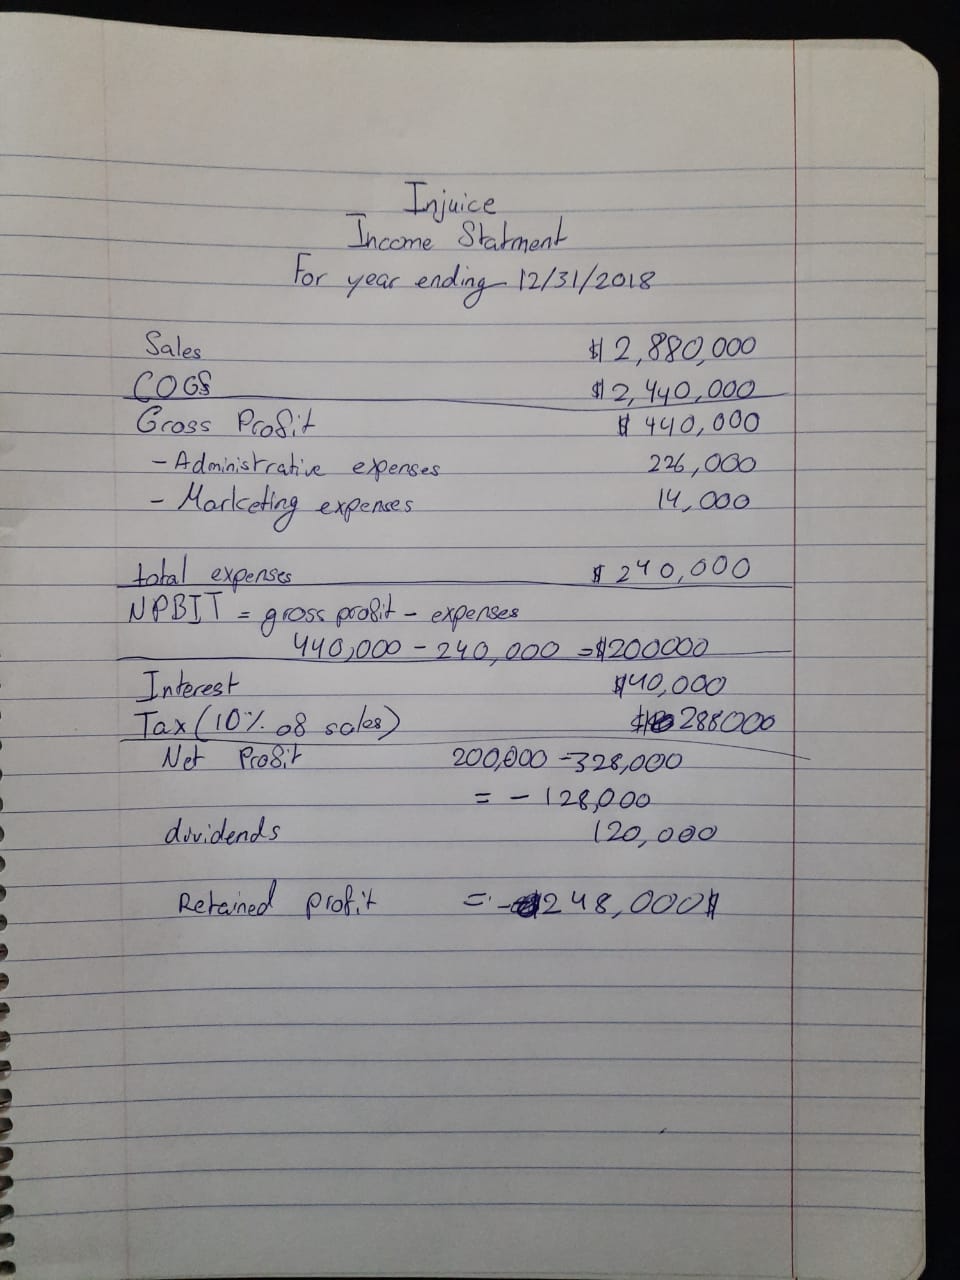 Injuice
Income Statment
For year ending 12/31/2018
Sales $2,880,000
COGS $2,440,000
Gross Profit $440,000
- Administrative expenses 226,000
- Marketing expenses 14,000
total expenses $240,000
NPBIT = gross profit - expenses
440,000 - 240,000 = $200000
Interest $40,000
Tax (10% of sales) $288000
Net Profit 200,000 - 328,000
= - 128,000
dividends 120,000
Retained profit = - 248,000$